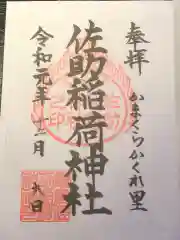 奉拝
かまくらかくれ里
佐助稲荷神社
令和元年十一月
日